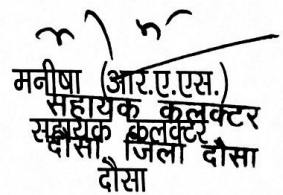 मनीषा (आर.ए.एस.)
सहायक कलक्टर
सहायक कलक्टर
दौसा जिला दौसा
दौसा